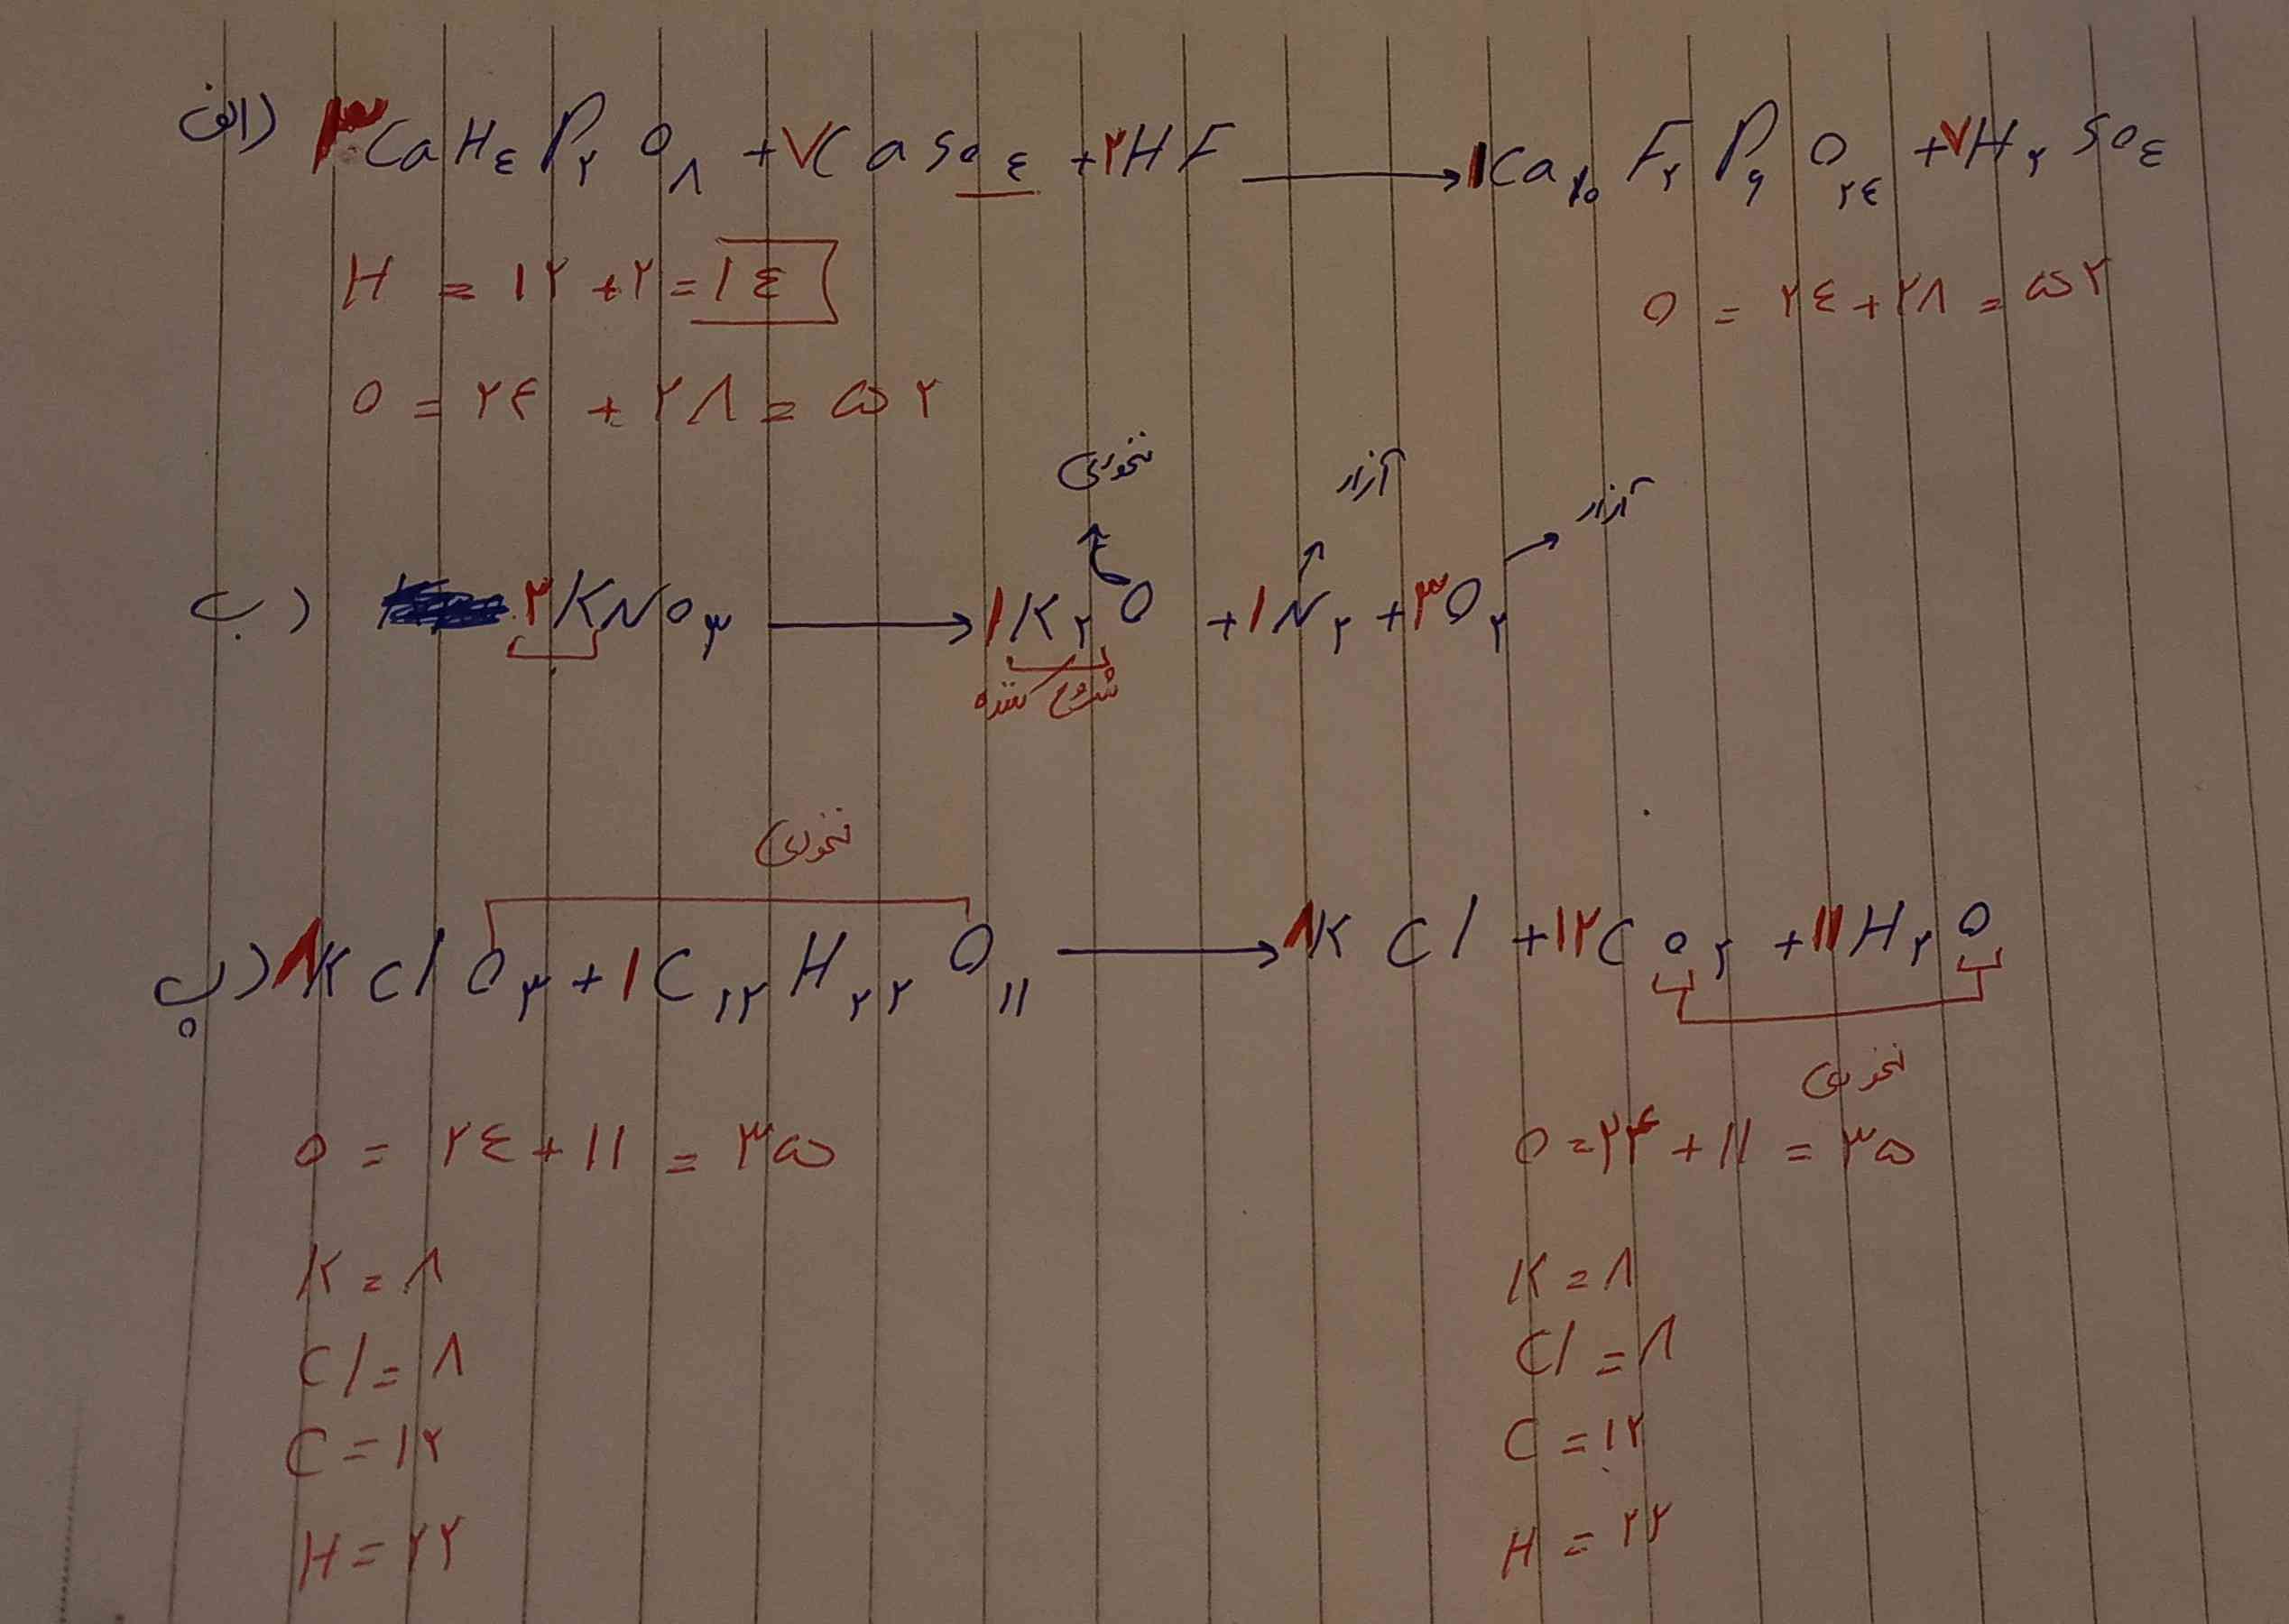 الف) ۳CaH٤P۲O۸ + ۷CaSO٤ + ۲HF → ۱Ca۱۰F۲P۶O۲٤ + ۷H۲SO٤
H = ۱۲ + ۲ = ۱٤
O = ۲٤ + ۲۸ = ۵۲
O = ۲٤ + ۲۸ = ۵۲
نخودی آزاد آزاد
ب) ۲KNO۳ → ۱K۲O + ۱N۲ + ۳O۲
شروع کننده
نخودی
پ) ۸KClO۳ + ۱C۱۲H۲۲O۱۱ → ۸KCl + ۱۲CO۲ + ۱۱H۲O
نخودی
O = ۲٤ + ۱۱ = ۳۵
O = ۲۴ + ۱۱ = ۳۵
K = ۸
K = ۸
Cl = ۸
Cl = ۸
C = ۱۲
C = ۱۲
H = ۲۲
H = ۲۲